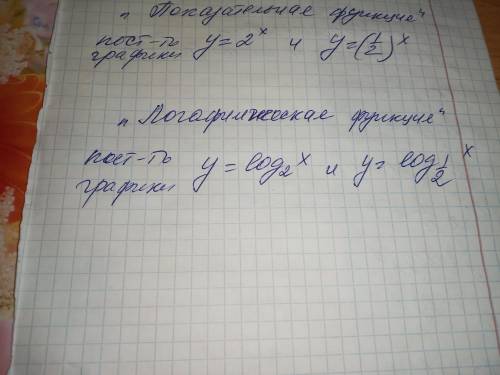 "Показательная функция"
пост-ть графики y = 2^x и y = (1/2)^x
"Логарифмическая функция"
пост-ть графики y = log_2 x и y = log_{1/2} x